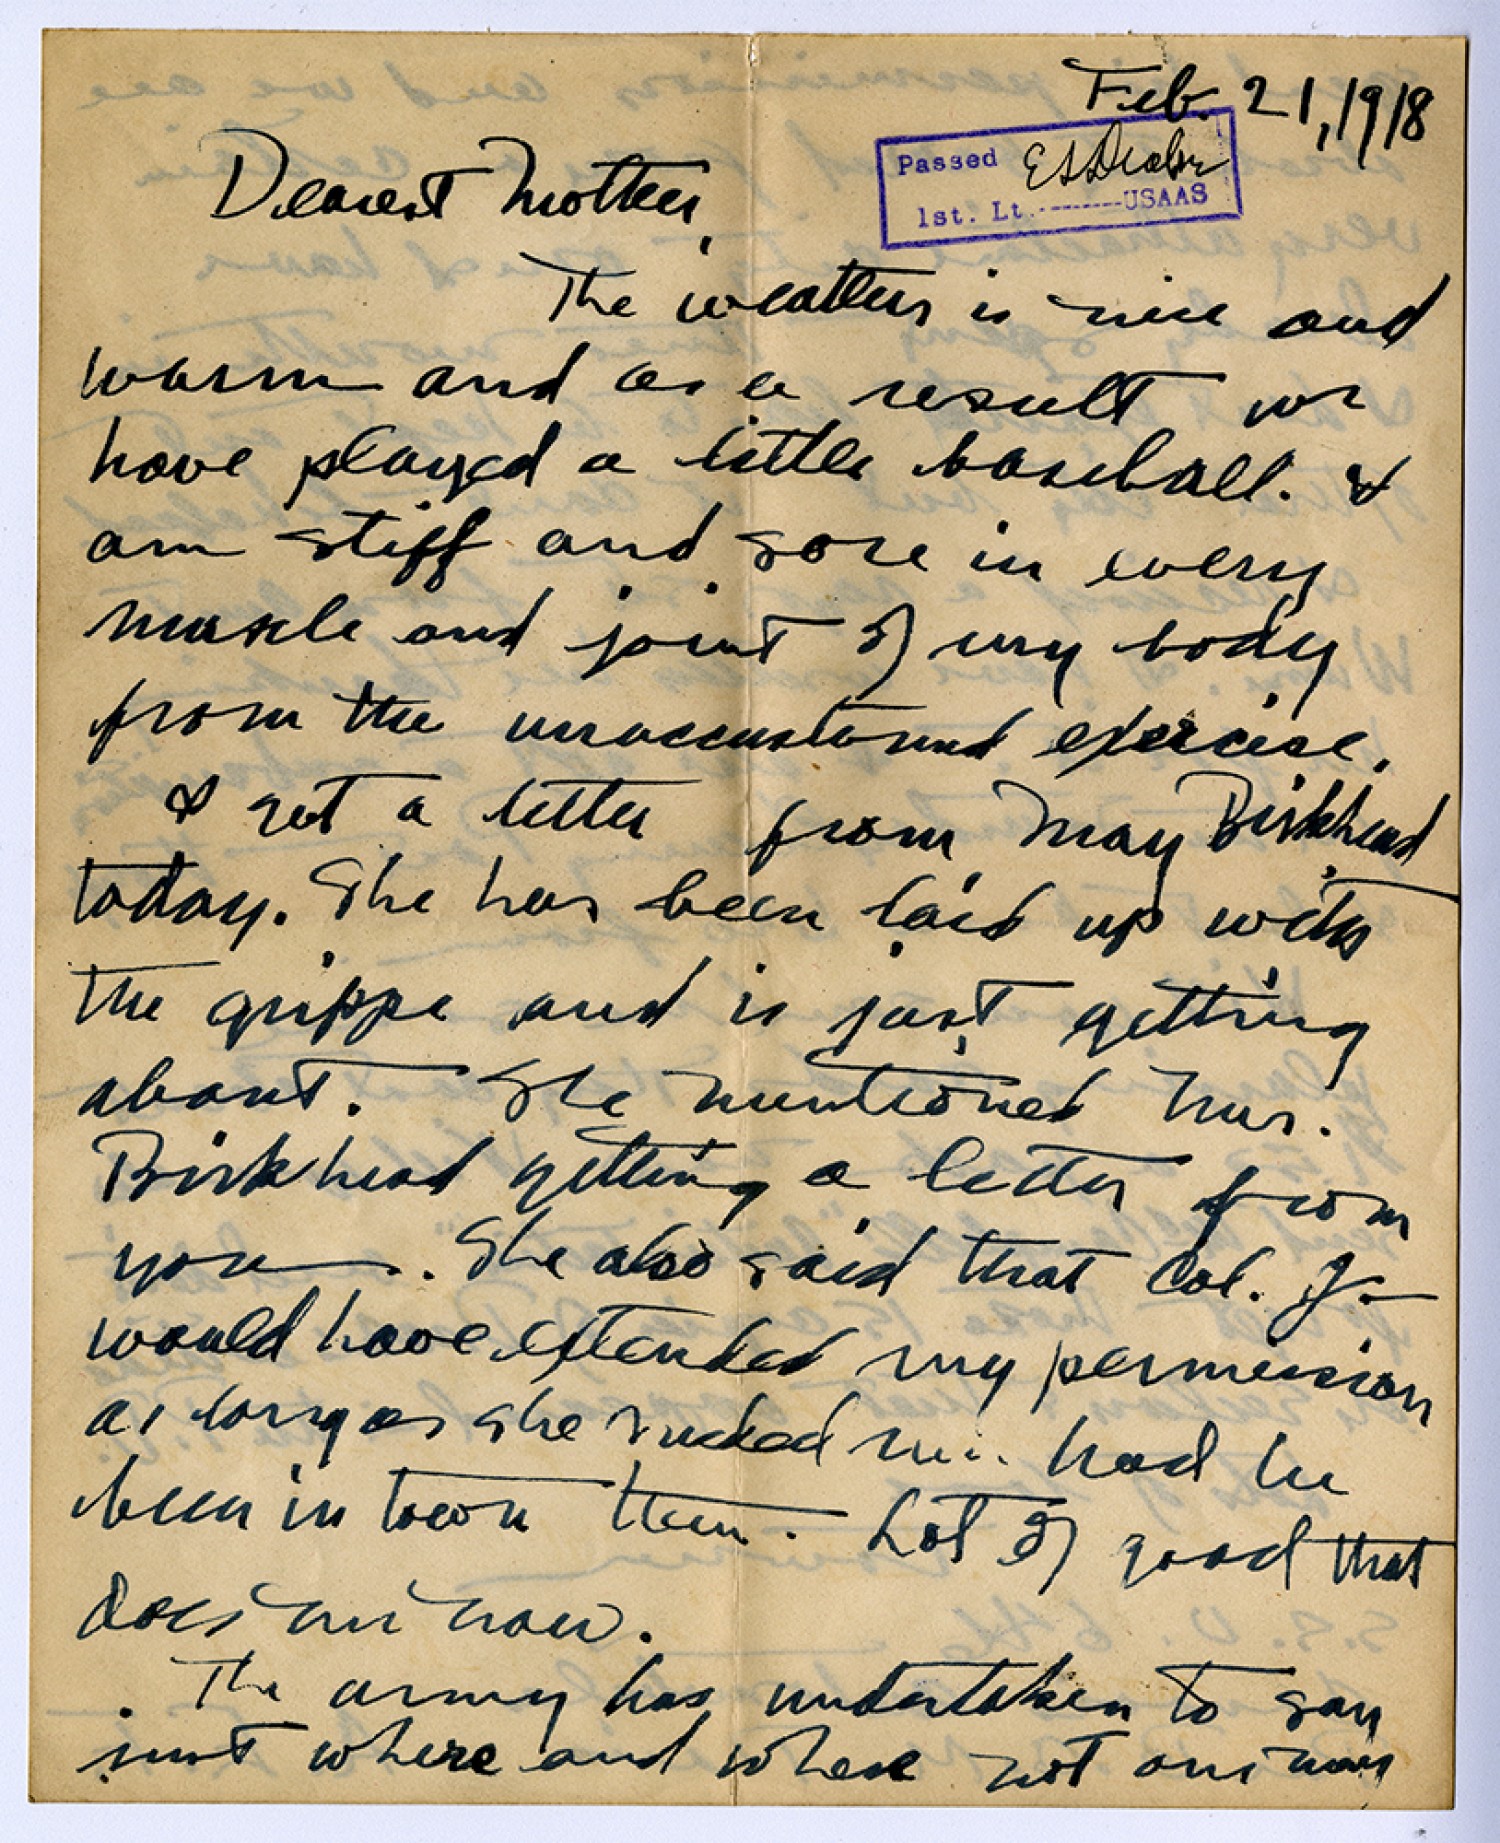 Feb. 21, 1918
Passed
1st. Lt.--------USAAS
Dearest Mother,
The weather is nice and
warm and as a result we
have played a little baseball. I
am stiff and sore in every
muscle and joint of my body
from the unaccustomed exercise.
I got a letter from May Birkhead
today. She has been laid up with
the grippe and is just getting
about. She mentioned Mrs.
Birkhead getting a letter from
you. She also said that Col. J—
would have extended my permission
as long as she needed me had he
been in town then. Lot of good that
does me now.
The army has undertaken to say
just where and where not one may